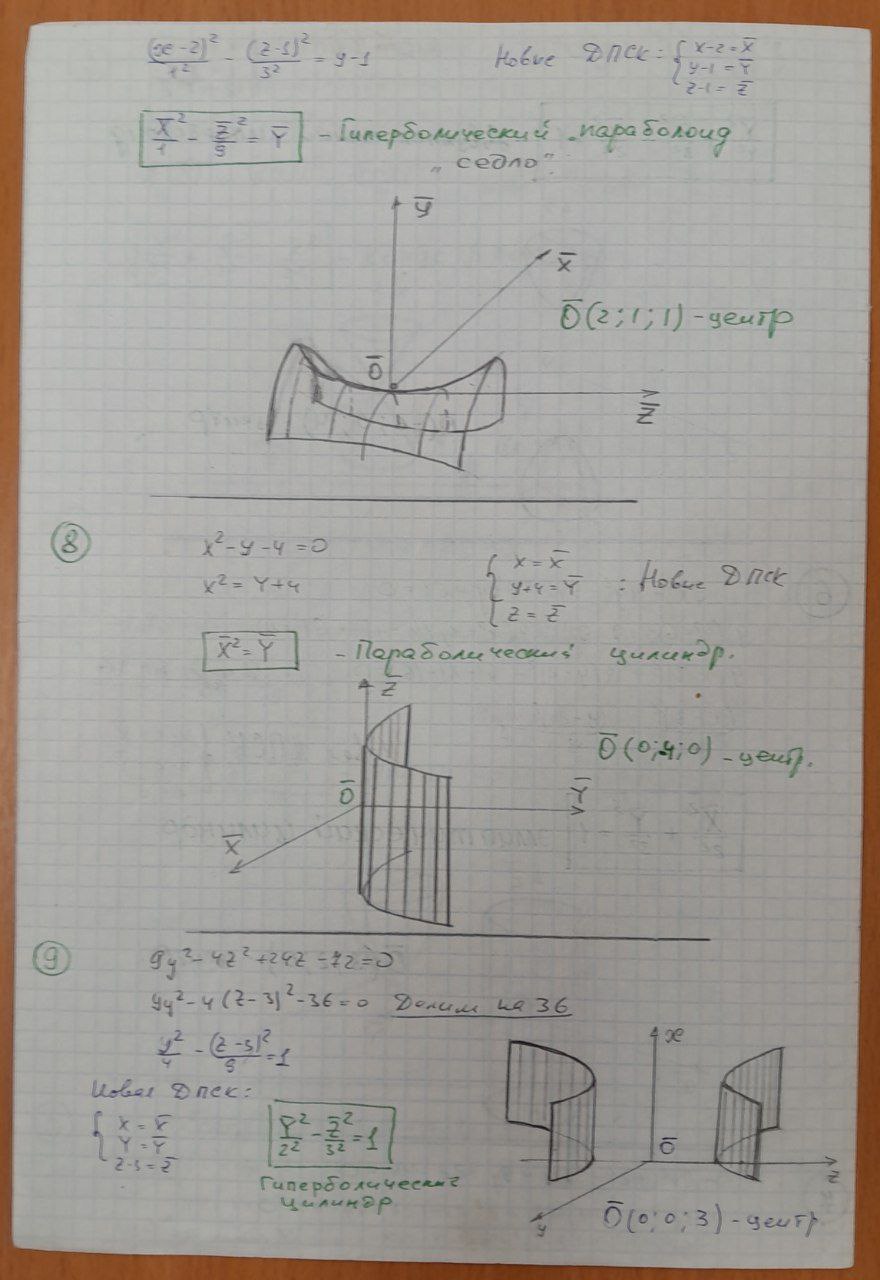 (x-2)²/1² - (z-1)²/3² = y-1 Новые ДПСК: { x-2 = X̅
y-1 = Y̅
z-1 = Z̅
X̅²/1 - Z̅²/9 = Y̅ - Гиперболический параболоид
„седло".
Y̅
X̅
O̅(2;1;1) - центр
O̅
Z̅
8 x² - y - 4 = 0
x² = y+4 { x = X̅
y+4 = Y̅ : Новые ДПСК
z = Z̅
X̅² = Y̅ - Параболический цилиндр.
Z̅
O̅(0;4;0) - центр.
O̅ Y̅
X̅
9 9y² - 4z² + 24z - 72 = 0
9y² - 4(z-3)² - 36 = 0 Делим на 36
y²/4 - (z-3)²/9 = 1
x
Новая ДПСК:
{ X = X̅
Y = Y̅
z-3 = Z̅
Y̅²/2² - Z̅²/3² = 1
O̅
z
Гиперболический
цилиндр
y
O̅(0;0;3) - центр